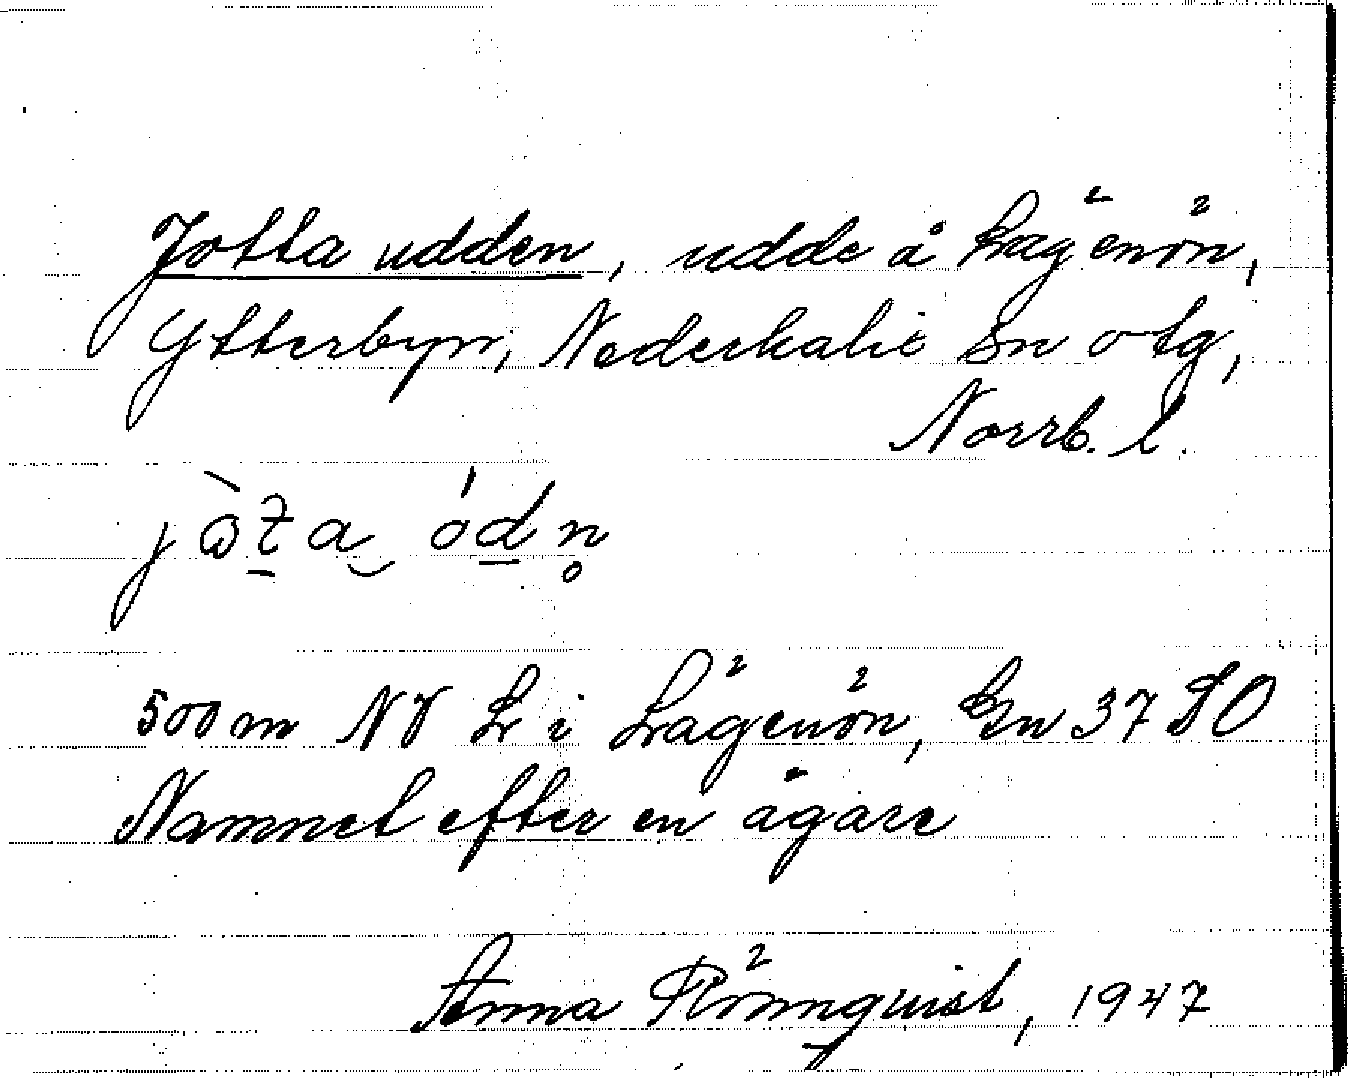 Jotta udden, udde å Lägenön,
Ytterbyn, Nederkalix sn o tg,
Norrb. l.
500 m NV Lr i Lägenön, Gn 37 SO
Namnet efter en ägare
Anna Rönnquist, 1947